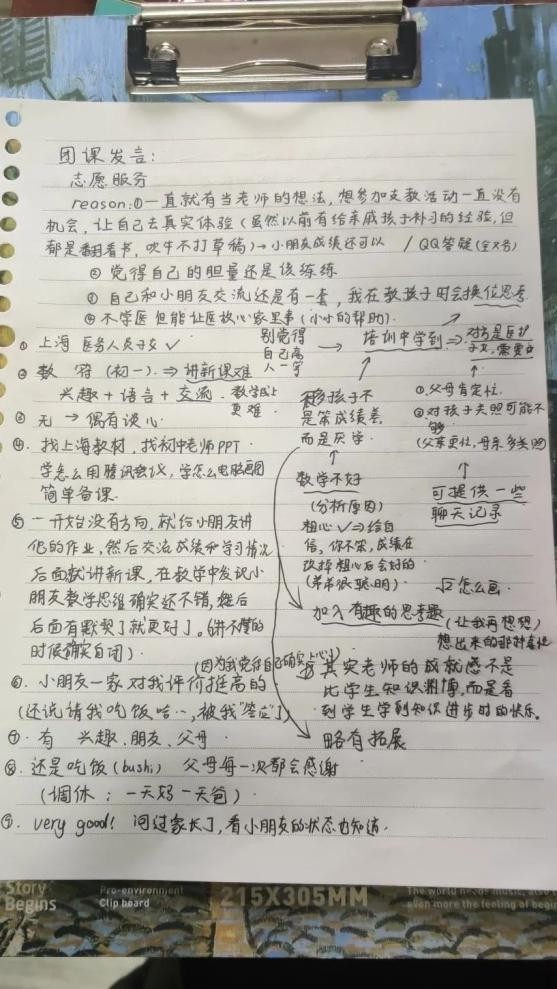 团课发言：
志愿服务
reason:①一直就有当老师的想法，想参加支教活动一直没有
机会，让自己去真实体验（虽然以前有给亲戚孩子补习的经验，但
都是翻看书，吹牛不打草稿）→小朋友成绩还可以 / QQ答疑
② 觉得自己的胆量还是该练练
③ 自己和小朋友交流还是有一套，我在教孩子时会换位思考
④ 不学医但能让医放心家里事（小小的帮助）.
① 上海 医务人员子女 ✓
别觉得
自己高
人一等
→ 培训中学到 ⇒ 对方是医护
子女，需要
② 数 符（初一）. ⇒ 讲新课难
兴趣 + 语言 + 交流. 数学上
更难.
③ 无 → 偶有谈心.
④. 找上海教材，找初中老师PPT
学怎么用腾讯会议，学怎么电脑画图
简单备课.
孩子不
是笨成绩差，
而是厌学.
①.父母肯定忙.
②对孩子关照可能不
够.
(父亲更忙，母亲多关照)
数学不好
(分析原因)
粗心 ✓ ⇒ 给自
信，你不笨，成绩在
改掉粗心后会好的
(弟弟很聪明)
可提供一些
聊天记录
√2怎么画.
⑤ 一开始没有方向，就给小朋友讲
他的作业，然后交流成绩和学习情况
后面就讲新课，在教学中发识小
朋友数学思维确实还不错，继后
后面有默契了就更好了。(讲不懂的
时候确实自闭).
加入有趣的思考题
(让我再想想)
想出来的那种喜悦
(因为我觉得自己确实上心了)
其实老师的成就感不是
比学生知识渊博，而是看
到学生学到知识进步时的快乐。
⑥. 小朋友一家对我评价挺高的
(还说请我吃饭哈…，被我"答应"了)
略有拓展
⑦. 有 兴趣.朋友.父母.
⑧. 还是吃饭(bushi) 父母每一次都会感谢
(调休：一天妈一天爸).
⑨. very good! 问过家长了，看小朋友的状态也知道.
Story
Begins
Pro-environment
Clip board
215X305MM
even more the feeling of begin